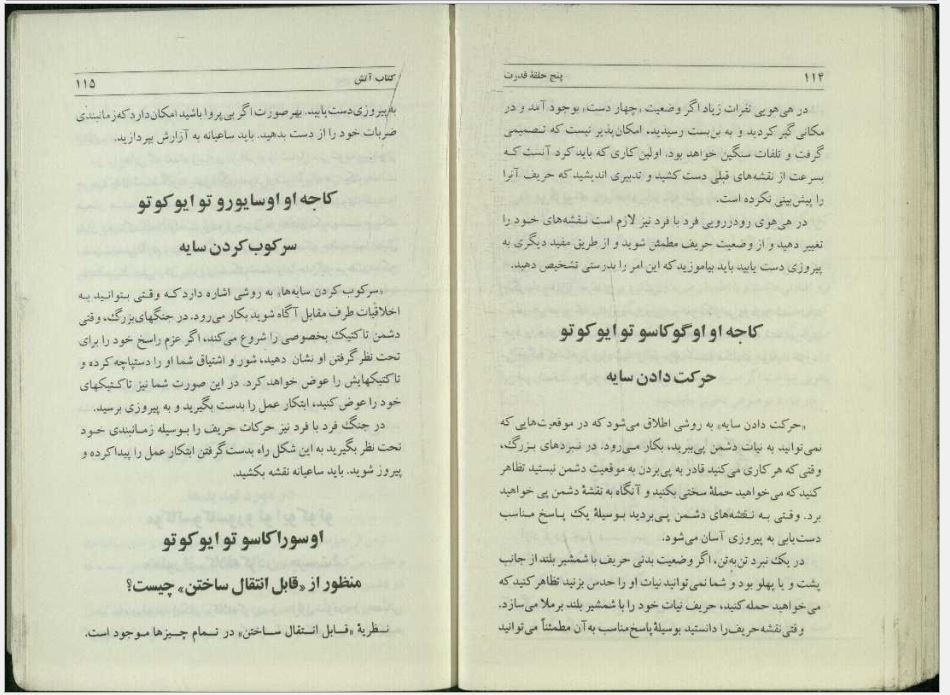 ۱۱۴
پنج حلقهٔ قدرت
در هی‌هویی نفرات زیاد اگر وضعیت «چهار دست» بوجود آمد و در
مکانی گیر کردید و به بن‌بست رسیدید، امکان‌پذیر نیست که تصمیمی
گرفت و تلفات سنگین خواهد بود. اولین کاری که باید کرد آنست که
بسرعت از نقشه‌های قبلی دست کشید و تدبیری اندیشید که حریف آنرا
را پیش‌بینی نکرده است.
در هی‌هوی رودررویی فرد با فرد نیز لازم است نقشه‌های خود را
تغییر دهید و از وضعیت حریف مطمئن شوید و از طریق مفید دیگری به
پیروزی دست یابید باید بیاموزید که این امر را بدرستی تشخیص دهید.
کاجه او اوگوکاسو تو ایوکوتو
حرکت دادن سایه
«حرکت دادن سایه» به روشی اطلاق می‌شود که در موقعت‌هایی که
نمی‌توانید به نیات دشمن پی‌ببرید، بکار می‌رود. در نبردهای بزرگ،
وقتی که هر کاری می‌کنید قادر به پی‌بردن به موقعیت دشمن نیستید تظاهر
کنید که می‌خواهید حملهٔ سختی بکنید و آنگاه به نقشهٔ دشمن پی خواهید
برد. وقتی به نقشه‌های دشمن پی‌بردید بوسیلهٔ یک پاسخ مناسب
دست‌یابی به پیروزی آسان می‌شود.
در یک نبرد تن‌به‌تن، اگر وضعیت بدنی حریف با شمشیر بلند از جانب
پشت و یا پهلو بود و شما نمی‌توانید نیات او را حدس بزنید تظاهر کنید که
می‌خواهید حمله کنید، حریف نیات خود را با شمشیر بلند برملا می‌سازد.
وقتی نقشه حریف را دانستید بوسیلهٔ پاسخ مناسب به آن مطمئناً می‌توانید
کتاب آتش
۱۱۵
به پیروزی دست یابید. بهر صورت اگر بی پروا باشید امکان دارد که زمانبندی
ضربات خود را از دست بدهید. باید ساعیانه به آزارش بپردازید.
کاجه او اوسایورو تو ایوکوتو
سرکوب کردن سایه
«سرکوب کردن سایه‌ها» به روشی اشاره دارد که وقتی بتوانید به
اخلاقیات طرف مقابل آگاه شوید بکار می‌رود. در جنگهای بزرگ، وقتی
دشمن تاکتیک بخصوصی را شروع می‌کند، اگر عزم راسخ خود را برای
تحت نظر گرفتن او نشان دهید، شور و اشتیاق شما او را دستپاچه کرده و
تاکتیکهایش را عوض خواهد کرد. در این صورت شما نیز تاکتیکهای
خود را عوض کنید، ابتکار عمل را بدست بگیرید و به پیروزی برسید.
در جنگ فرد با فرد نیز حرکات حریف را بوسیله زمانبندی خود
تحت نظر بگیرید به این شکل راه بدست گرفتن ابتکار عمل را پیدا کرده و
پیروز شوید. باید ساعیانه نقشه بکشید.
اوسوراکاسو تو ایوکوتو
منظور از «قابل انتقال ساختن» چیست؟
نظریهٔ «قابل انتقال ساختن» در تمام چیزها موجود است.